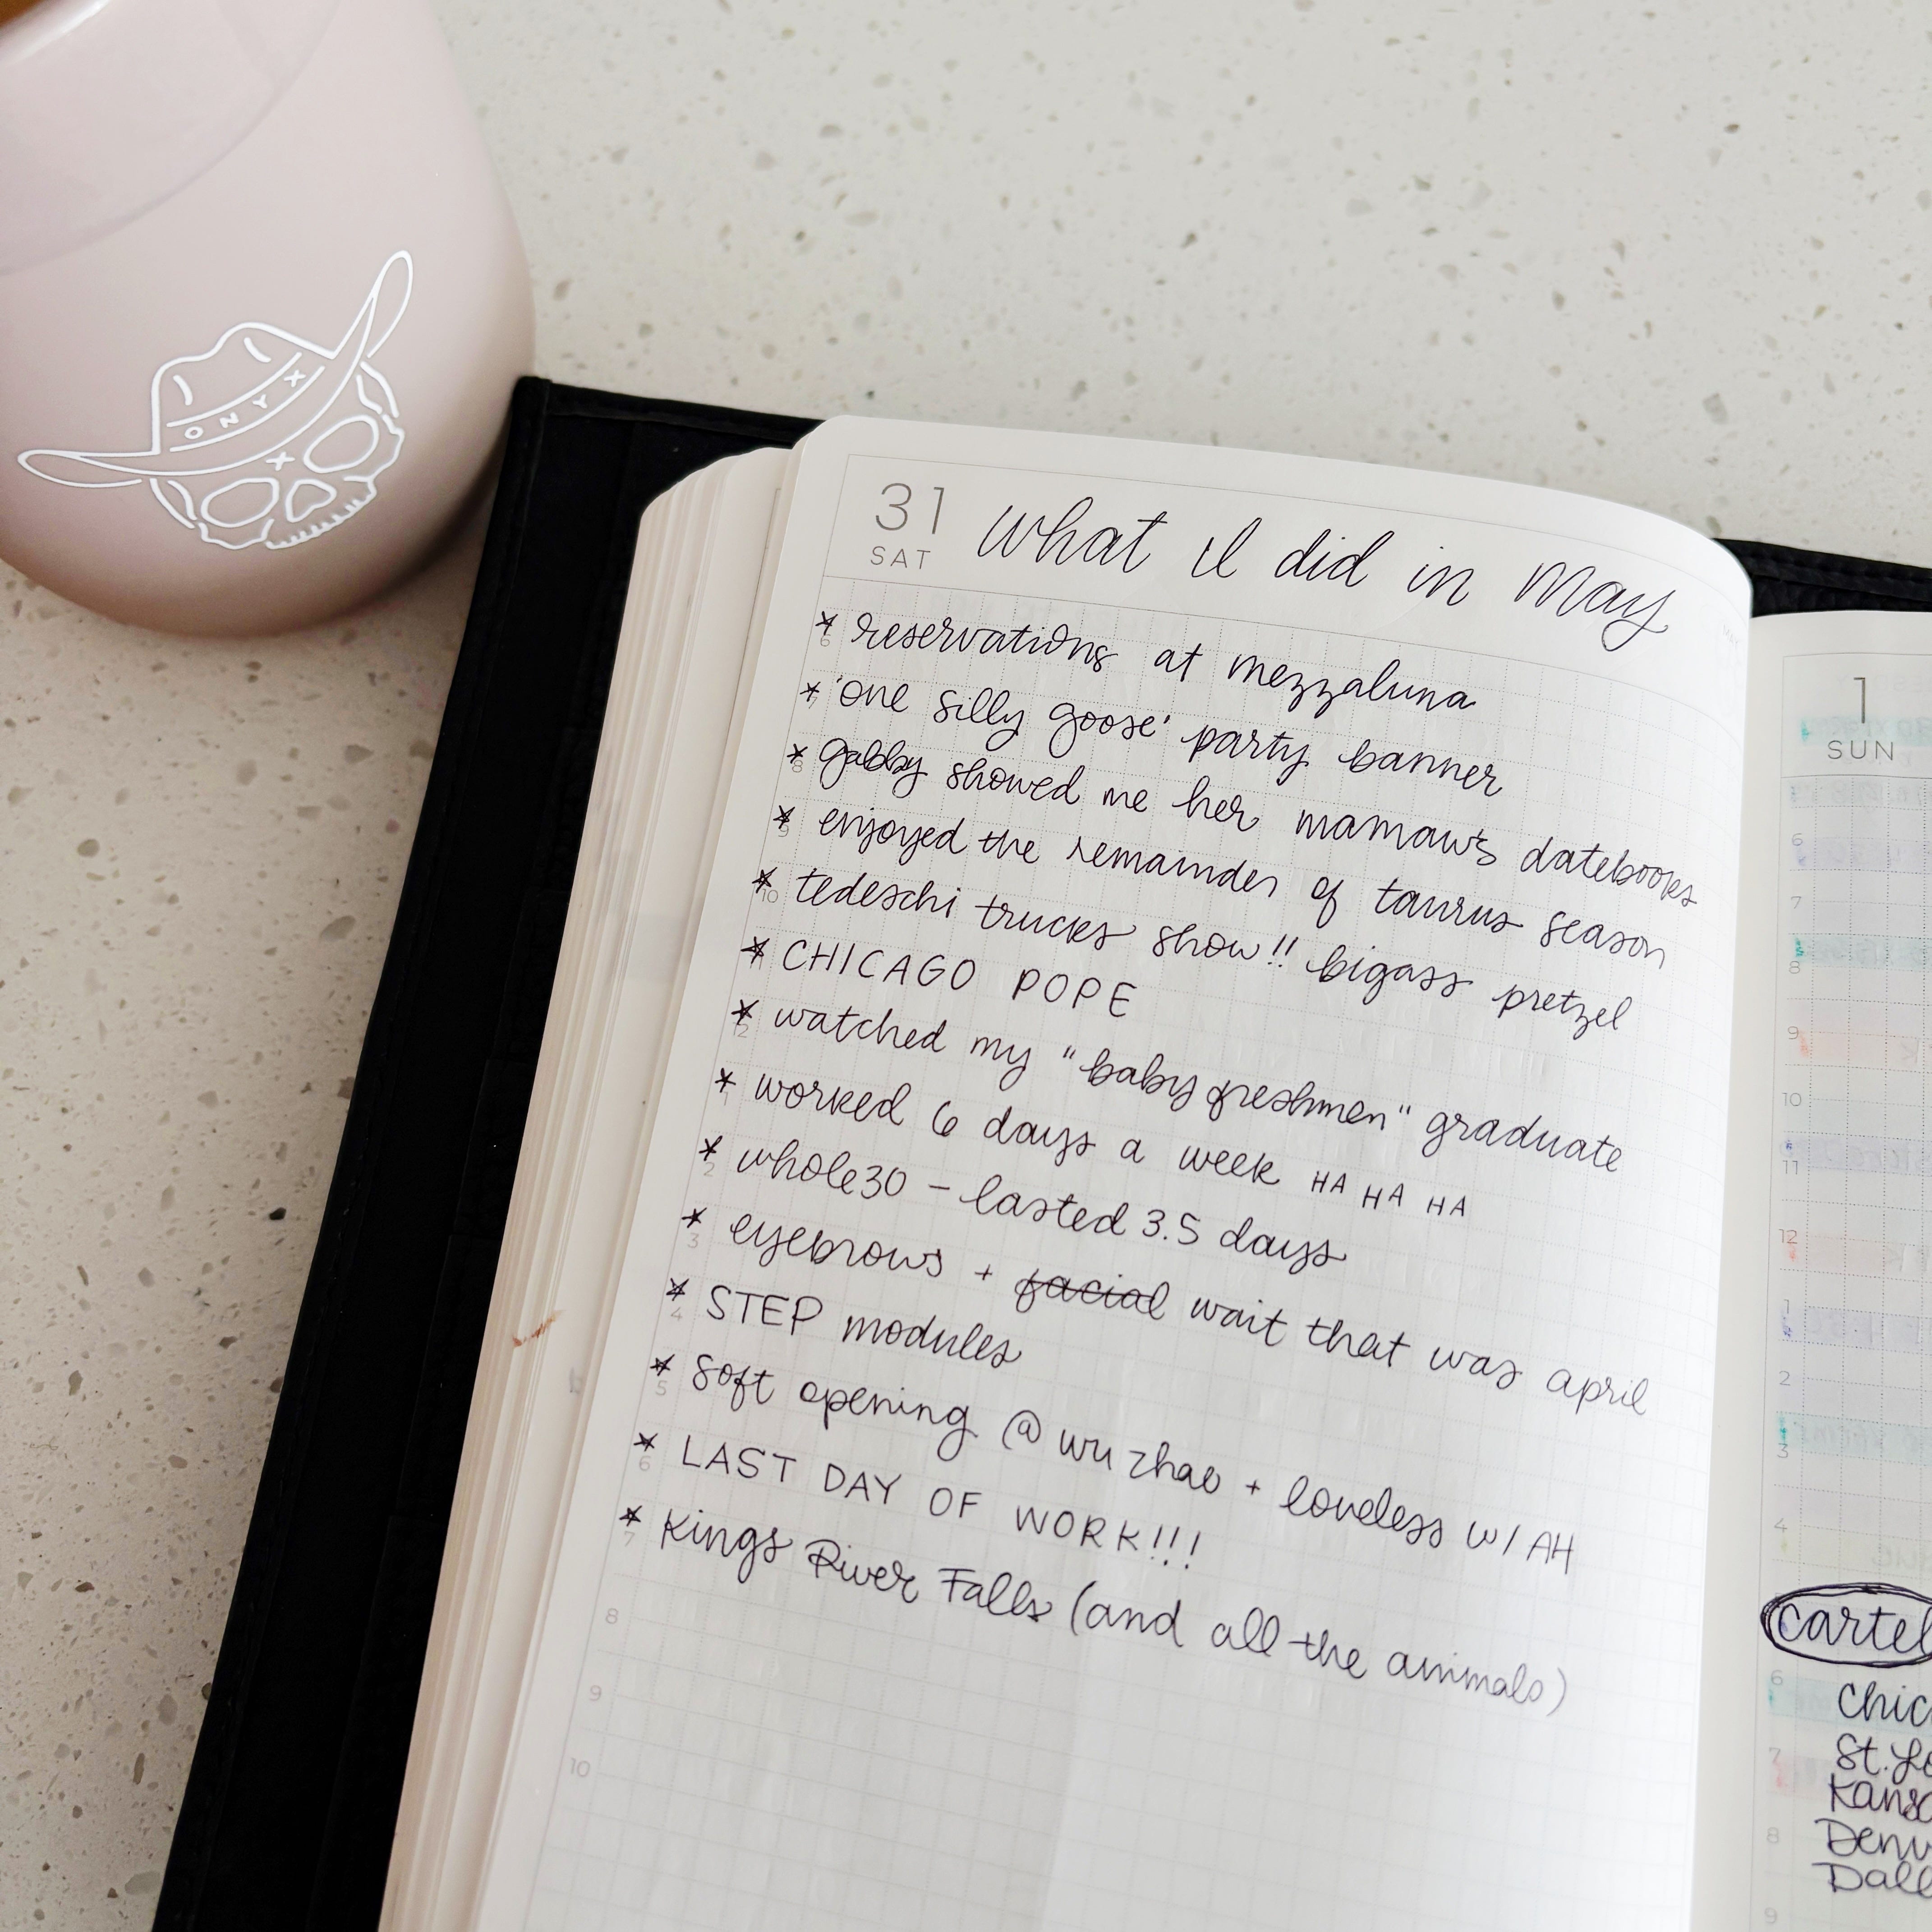 ONYX
31
SAT
What I did in May
* reservations at mezzaluna
* 'one silly goose' party banner
* gabby showed me her mamaw's datebooks
* enjoyed the remainder of taurus season
* tedeschi trucks show!! bigass pretzel
* CHICAGO POPE
* watched my "baby freshmen" graduate
* worked 6 days a week HA HA HA
* whole30 - lasted 3.5 days
* eyebrows + facial wait that was april
* STEP modules
* soft opening @ wu zhao + loveless w/ AH
* LAST DAY OF WORK!!!
* Kings River Falls (and all the animals)
6
7
8
9
10
2
1
2
3
4
5
6
7
8
9
10
1
SUN
6
7
8
9
10
11
12
1
2
3
4
cartel
6
Chic
7
St. Lo
Kansa
8
Denv
Dall
9